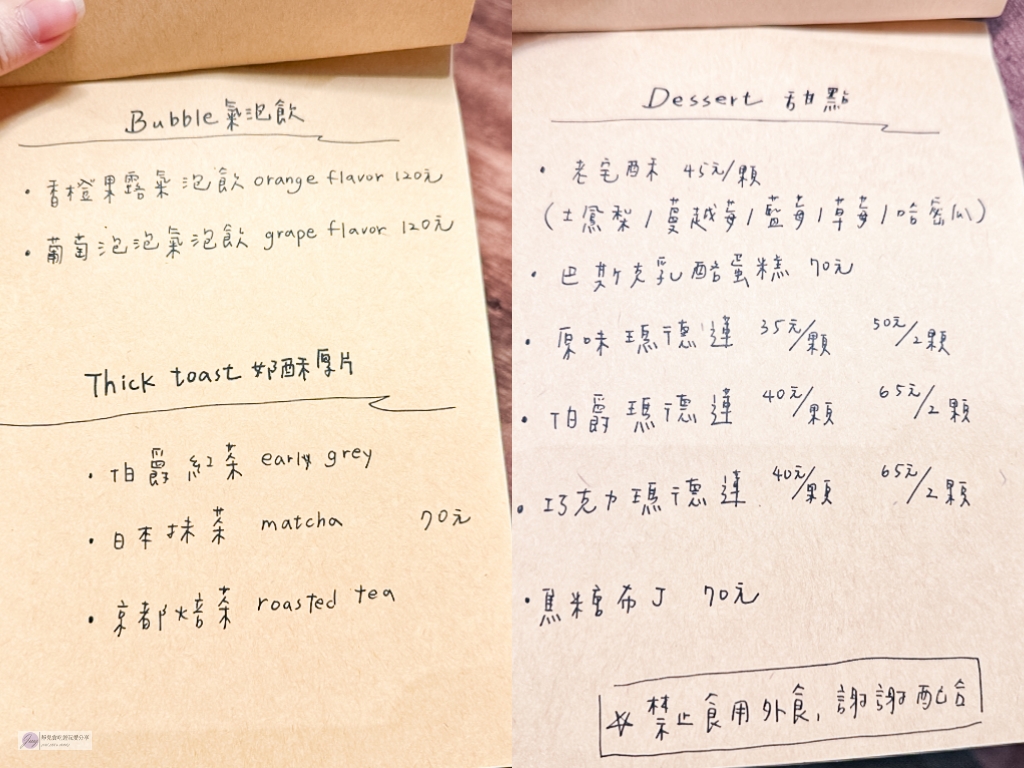 Bubble 氣泡飲
・香橙果露氣泡飲 orange flavor 120元
・葡萄泡泡氣泡飲 grape flavor 120元
Thick toast 奶酥厚片
・伯爵紅茶 early grey
・日本抹茶 matcha 70元
・京都焙茶 roasted tea
Dessert 甜點
・老宅酥 45元/顆
(土鳳梨/蔓越莓/藍莓/草莓/哈密瓜)
・巴斯克乳酪蛋糕 70元
・原味瑪德蓮 35元/顆 50元/2顆
・伯爵瑪德蓮 40元/顆 65元/2顆
・巧克力瑪德蓮 40元/顆 65元/2顆
・焦糖布丁 70元
☆禁止食用外食,謝謝配合